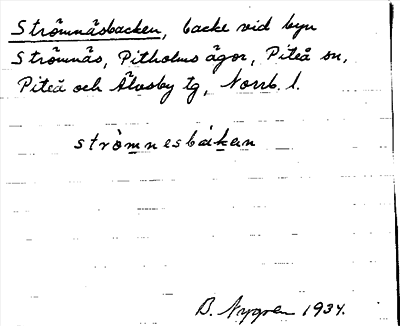 Strömnäsbacken, backe vid byn
Strömnäs, Pitholms ägor, Piteå sn,
Piteå och Älvsby tg, Norrb. l.
strömnesbakan
B. Nygren 1934.